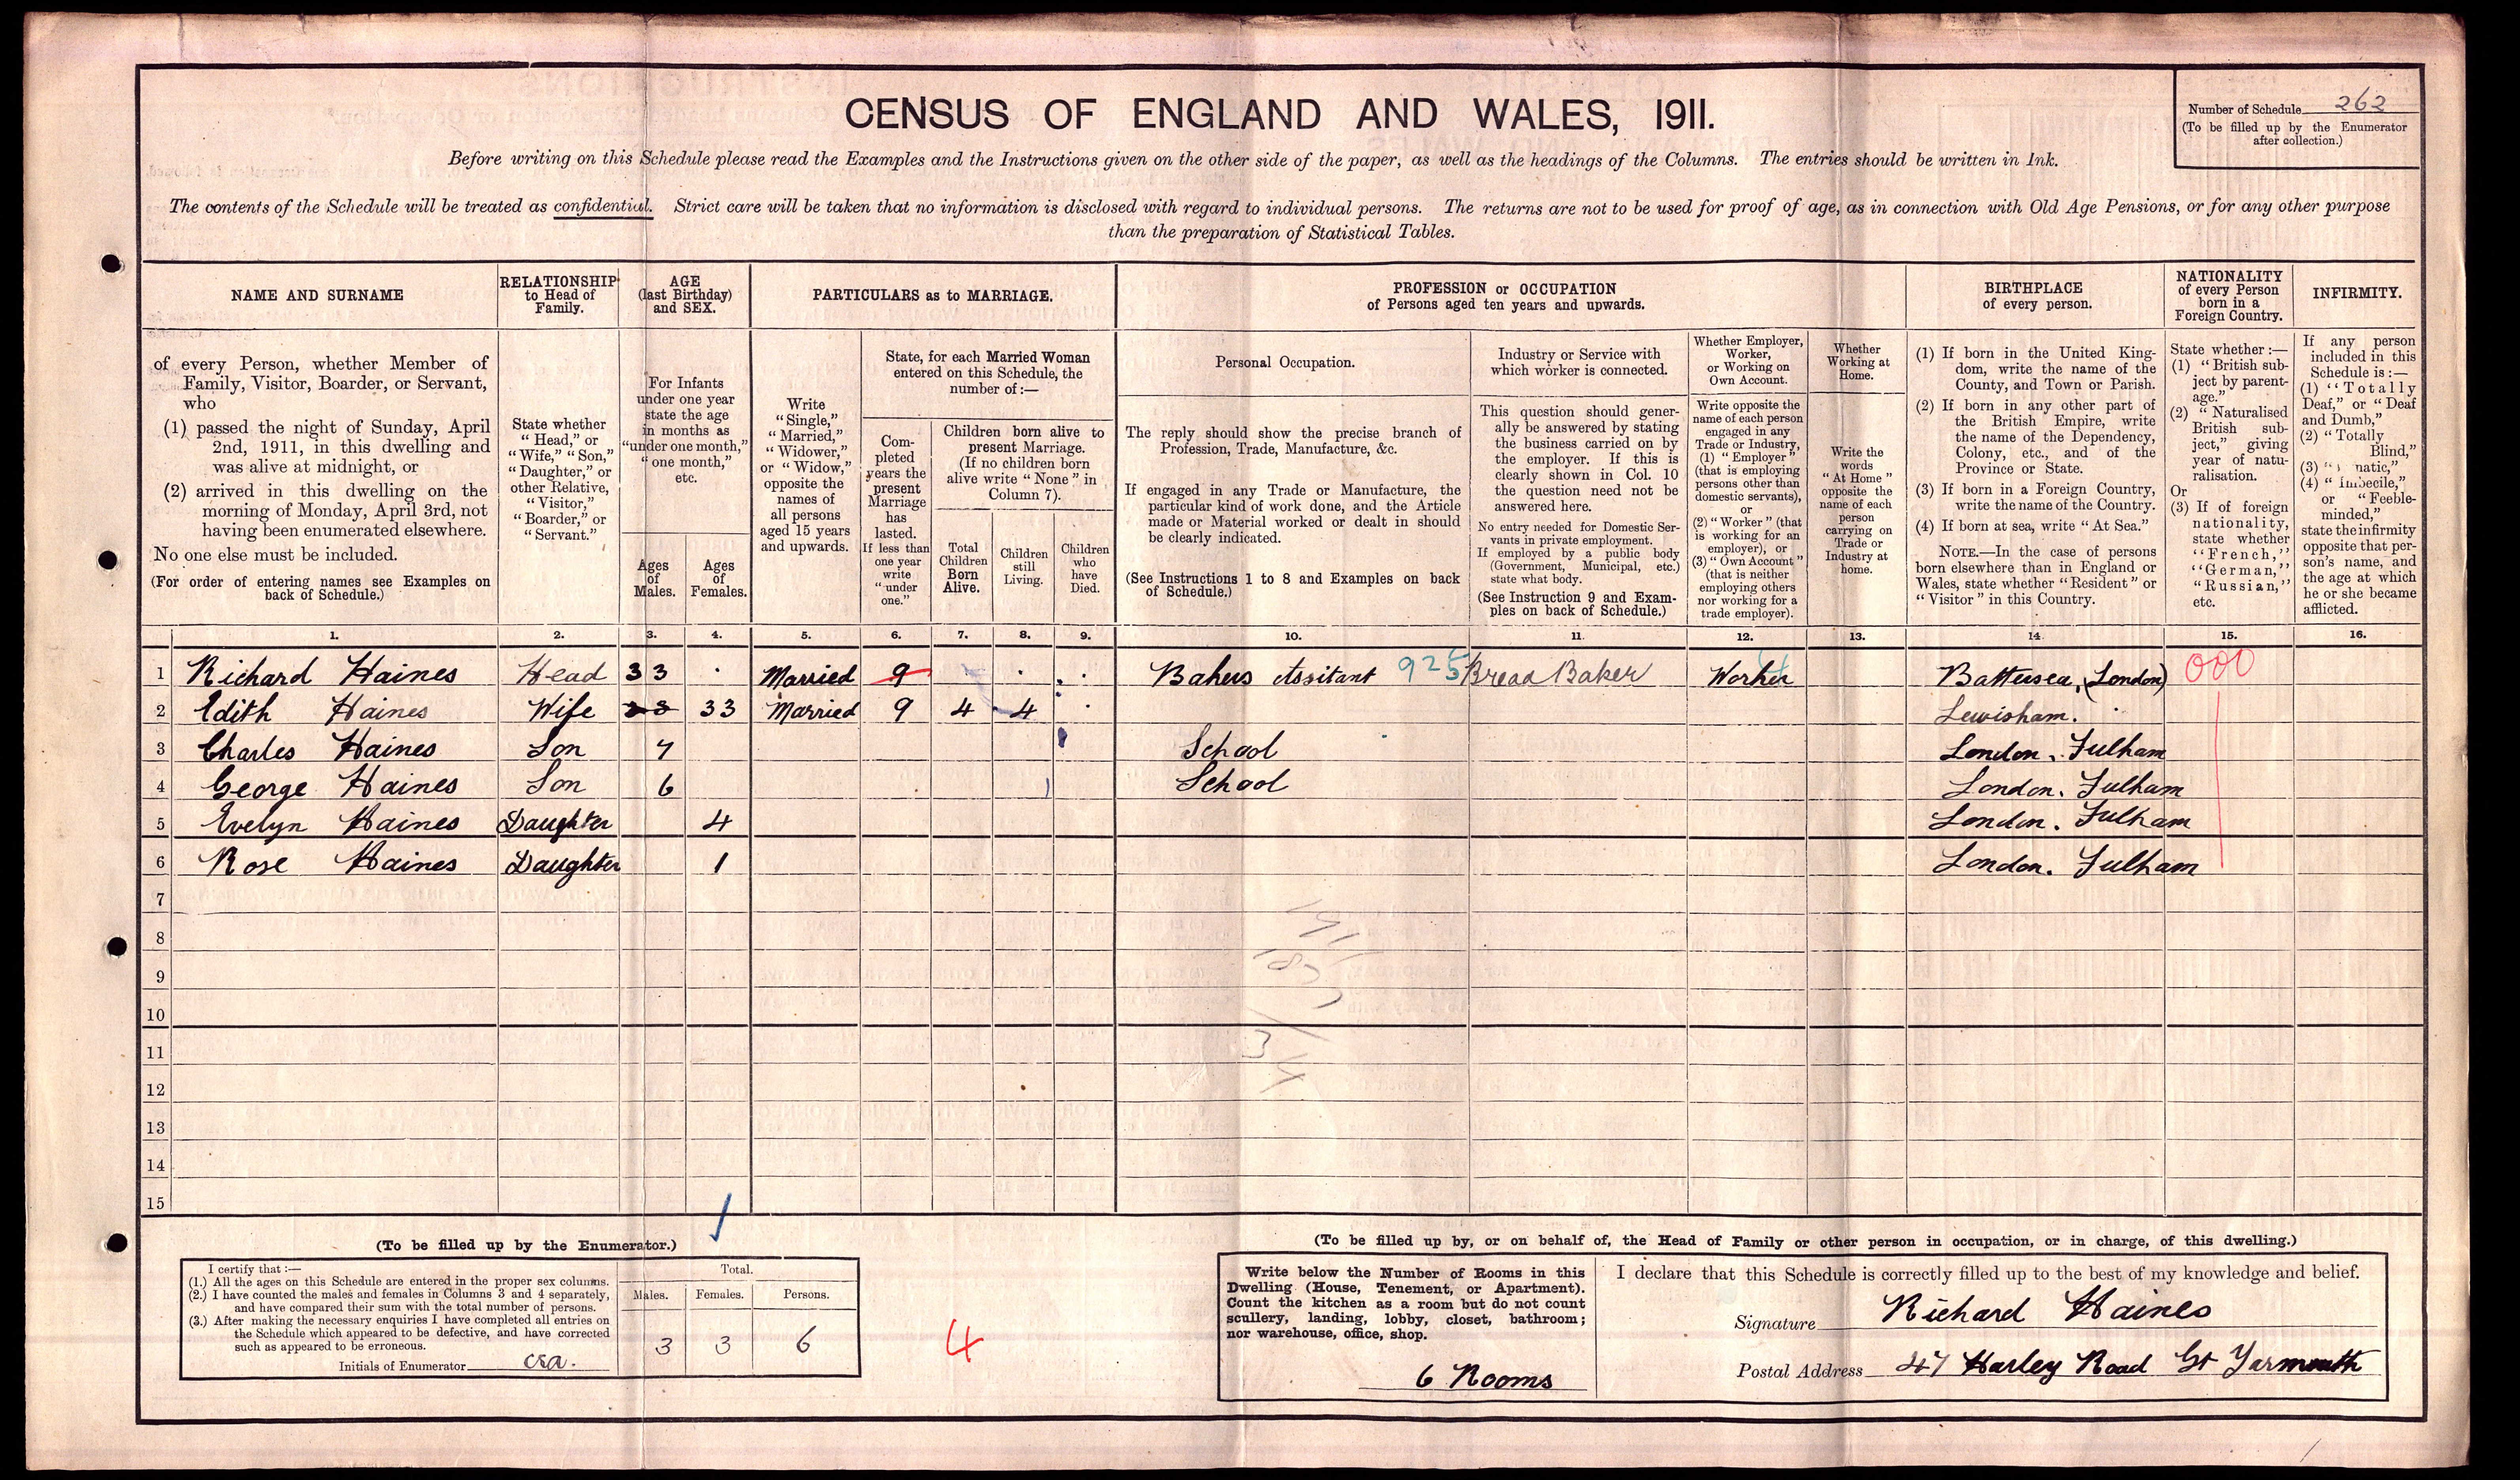 CENSUS OF ENGLAND AND WALES, 1911.
Number of Schedule 262
(To be filled up by the Enumerator
after collection.)
Before writing on this Schedule please read the Examples and the Instructions given on the other side of the paper, as well as the headings of the Columns. The entries should be written in Ink.
The contents of the Schedule will be treated as confidential. Strict care will be taken that no information is disclosed with regard to individual persons. The returns are not to be used for proof of age, as in connection with Old Age Pensions, or for any other purpose
than the preparation of Statistical Tables.
NAME AND SURNAME
of every Person, whether Member of
Family, Visitor, Boarder, or Servant,
who
(1) passed the night of Sunday, April
2nd, 1911, in this dwelling and
was alive at midnight, or
(2) arrived in this dwelling on the
morning of Monday, April 3rd, not
having been enumerated elsewhere.
No one else must be included.
(For order of entering names see Examples on
back of Schedule.)
RELATIONSHIP
to Head of
Family.
State whether
"Head," or
"Wife," "Son,"
"Daughter," or
other Relative,
"Visitor,"
"Boarder," or
"Servant."
AGE
(last Birthday)
and SEX.
For Infants
under one year
state the age
in months as
"under one month,"
"one month,"
etc.
Ages
of
Males.
Ages
of
Females.
PARTICULARS as to MARRIAGE.
Write
"Single,"
"Married,"
"Widower,"
or "Widow,"
opposite the
names of
all persons
aged 15 years
and upwards.
State, for each Married Woman
entered on this Schedule, the
number of:—
Com-
pleted
years the
present
Marriage
has
lasted.
If less than
one year
write
"under
one."
Children born alive to
present Marriage.
(If no children born
alive write "None" in
Column 7).
Total
Children
Born
Alive.
Children
still
Living.
Children
who
have
Died.
PROFESSION or OCCUPATION
of Persons aged ten years and upwards.
Personal Occupation.
The reply should show the precise branch of
Profession, Trade, Manufacture, &c.
If engaged in any Trade or Manufacture, the
particular kind of work done, and the Article
made or Material worked or dealt in should
be clearly indicated.
(See Instructions 1 to 8 and Examples on back
of Schedule.)
Industry or Service with
which worker is connected.
This question should gener-
ally be answered by stating
the business carried on by
the employer. If this is
clearly shown in Col. 10
the question need not be
answered here.
No entry needed for Domestic Ser-
vants in private employment.
If employed by a public body
(Government, Municipal, etc.)
state what body.
(See Instruction 9 and Exam-
ples on back of Schedule.)
Whether Employer,
Worker,
or Working on
Own Account.
Write opposite the
name of each person
engaged in any
Trade or Industry,
(1) "Employer"
(that is employing
persons other than
domestic servants),
or
(2) "Worker" (that
is working for an
employer), or
(3) "Own Account"
(that is neither
employing others
nor working for a
trade employer).
Whether
Working at
Home.
Write the
words
"At Home"
opposite the
name of each
person
carrying on
Trade or
Industry at
home.
BIRTHPLACE
of every person.
(1) If born in the United King-
dom, write the name of the
County, and Town or Parish.
(2) If born in any other part of
the British Empire, write
the name of the Dependency,
Colony, etc., and of the
Province or State.
(3) If born in a Foreign Country,
write the name of the Country.
(4) If born at sea, write "At Sea."
NOTE.—In the case of persons
born elsewhere than in England or
Wales, state whether "Resident" or
"Visitor" in this Country.
NATIONALITY
of every Person
born in a
Foreign Country.
State whether:—
(1) "British sub-
ject by parent-
age."
(2) "Naturalised
British sub-
ject," giving
year of natu-
ralisation.
Or
(3) If of foreign
nationality,
state whether
"French,"
"German,"
"Russian,"
etc.
INFIRMITY.
If any person
included in this
Schedule is:—
(1) "Totally
Deaf," or "Deaf
and Dumb,"
(2) "Totally
Blind,"
(3)
(4) "Imbecile,"
or "Feeble-
minded,"
state the infirmity
opposite that per-
son's name, and
the age at which
he or she became
afflicted.
1. 2. 3. 4. 5. 6. 7. 8. 9. 10. 11. 12. 13. 14. 15. 16.
1 Richard Haines Head 33 Married 9 Bakers Assitant 925 Bread Baker Worker Battersea, (London) 000
2 Edith Haines Wife 33 33 Married 9 4 4 Lewisham.
3 Charles Haines Son 7 School London. Fulham
4 George Haines Son 6 School London. Fulham
5 Evelyn Haines Daughter 4 London. Fulham
6 Rose Haines Daughter 1 London. Fulham
7
8
9
10
11
12
13
14
15
(To be filled up by the Enumerator.)
I certify that:—
(1.) All the ages on this Schedule are entered in the proper sex columns.
(2.) I have counted the males and females in Columns 3 and 4 separately,
and have compared their sum with the total number of persons.
(3.) After making the necessary enquiries I have completed all entries on
the Schedule which appeared to be defective, and have corrected
such as appeared to be erroneous.
Initials of Enumerator
Total.
Males. Females. Persons.
3 3 6
4
(To be filled up by, or on behalf of, the Head of Family or other person in occupation, or in charge, of this dwelling.)
Write below the Number of Rooms in this
Dwelling (House, Tenement, or Apartment).
Count the kitchen as a room but do not count
scullery, landing, lobby, closet, bathroom;
nor warehouse, office, shop.
6 Rooms
I declare that this Schedule is correctly filled up to the best of my knowledge and belief.
Signature Richard Haines
Postal Address 47 Harley Road Gt Yarmouth